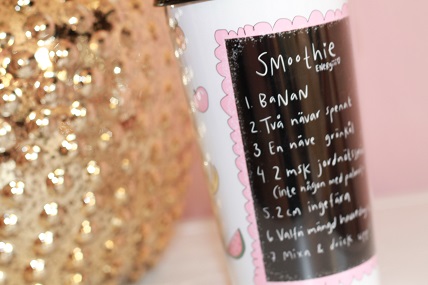 SMoothie
ENERGISK
1. BaNAN
2. Två nävar spenat
3 En näve grönkål
4 2 msk jordnöts
(inte någon med palm
5. 2 cm ingefära
6 Valfri mängd
7 Mixa & drick upp